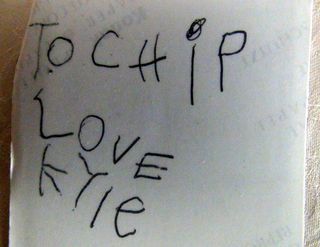 TO CHiP
LOVE
KYle